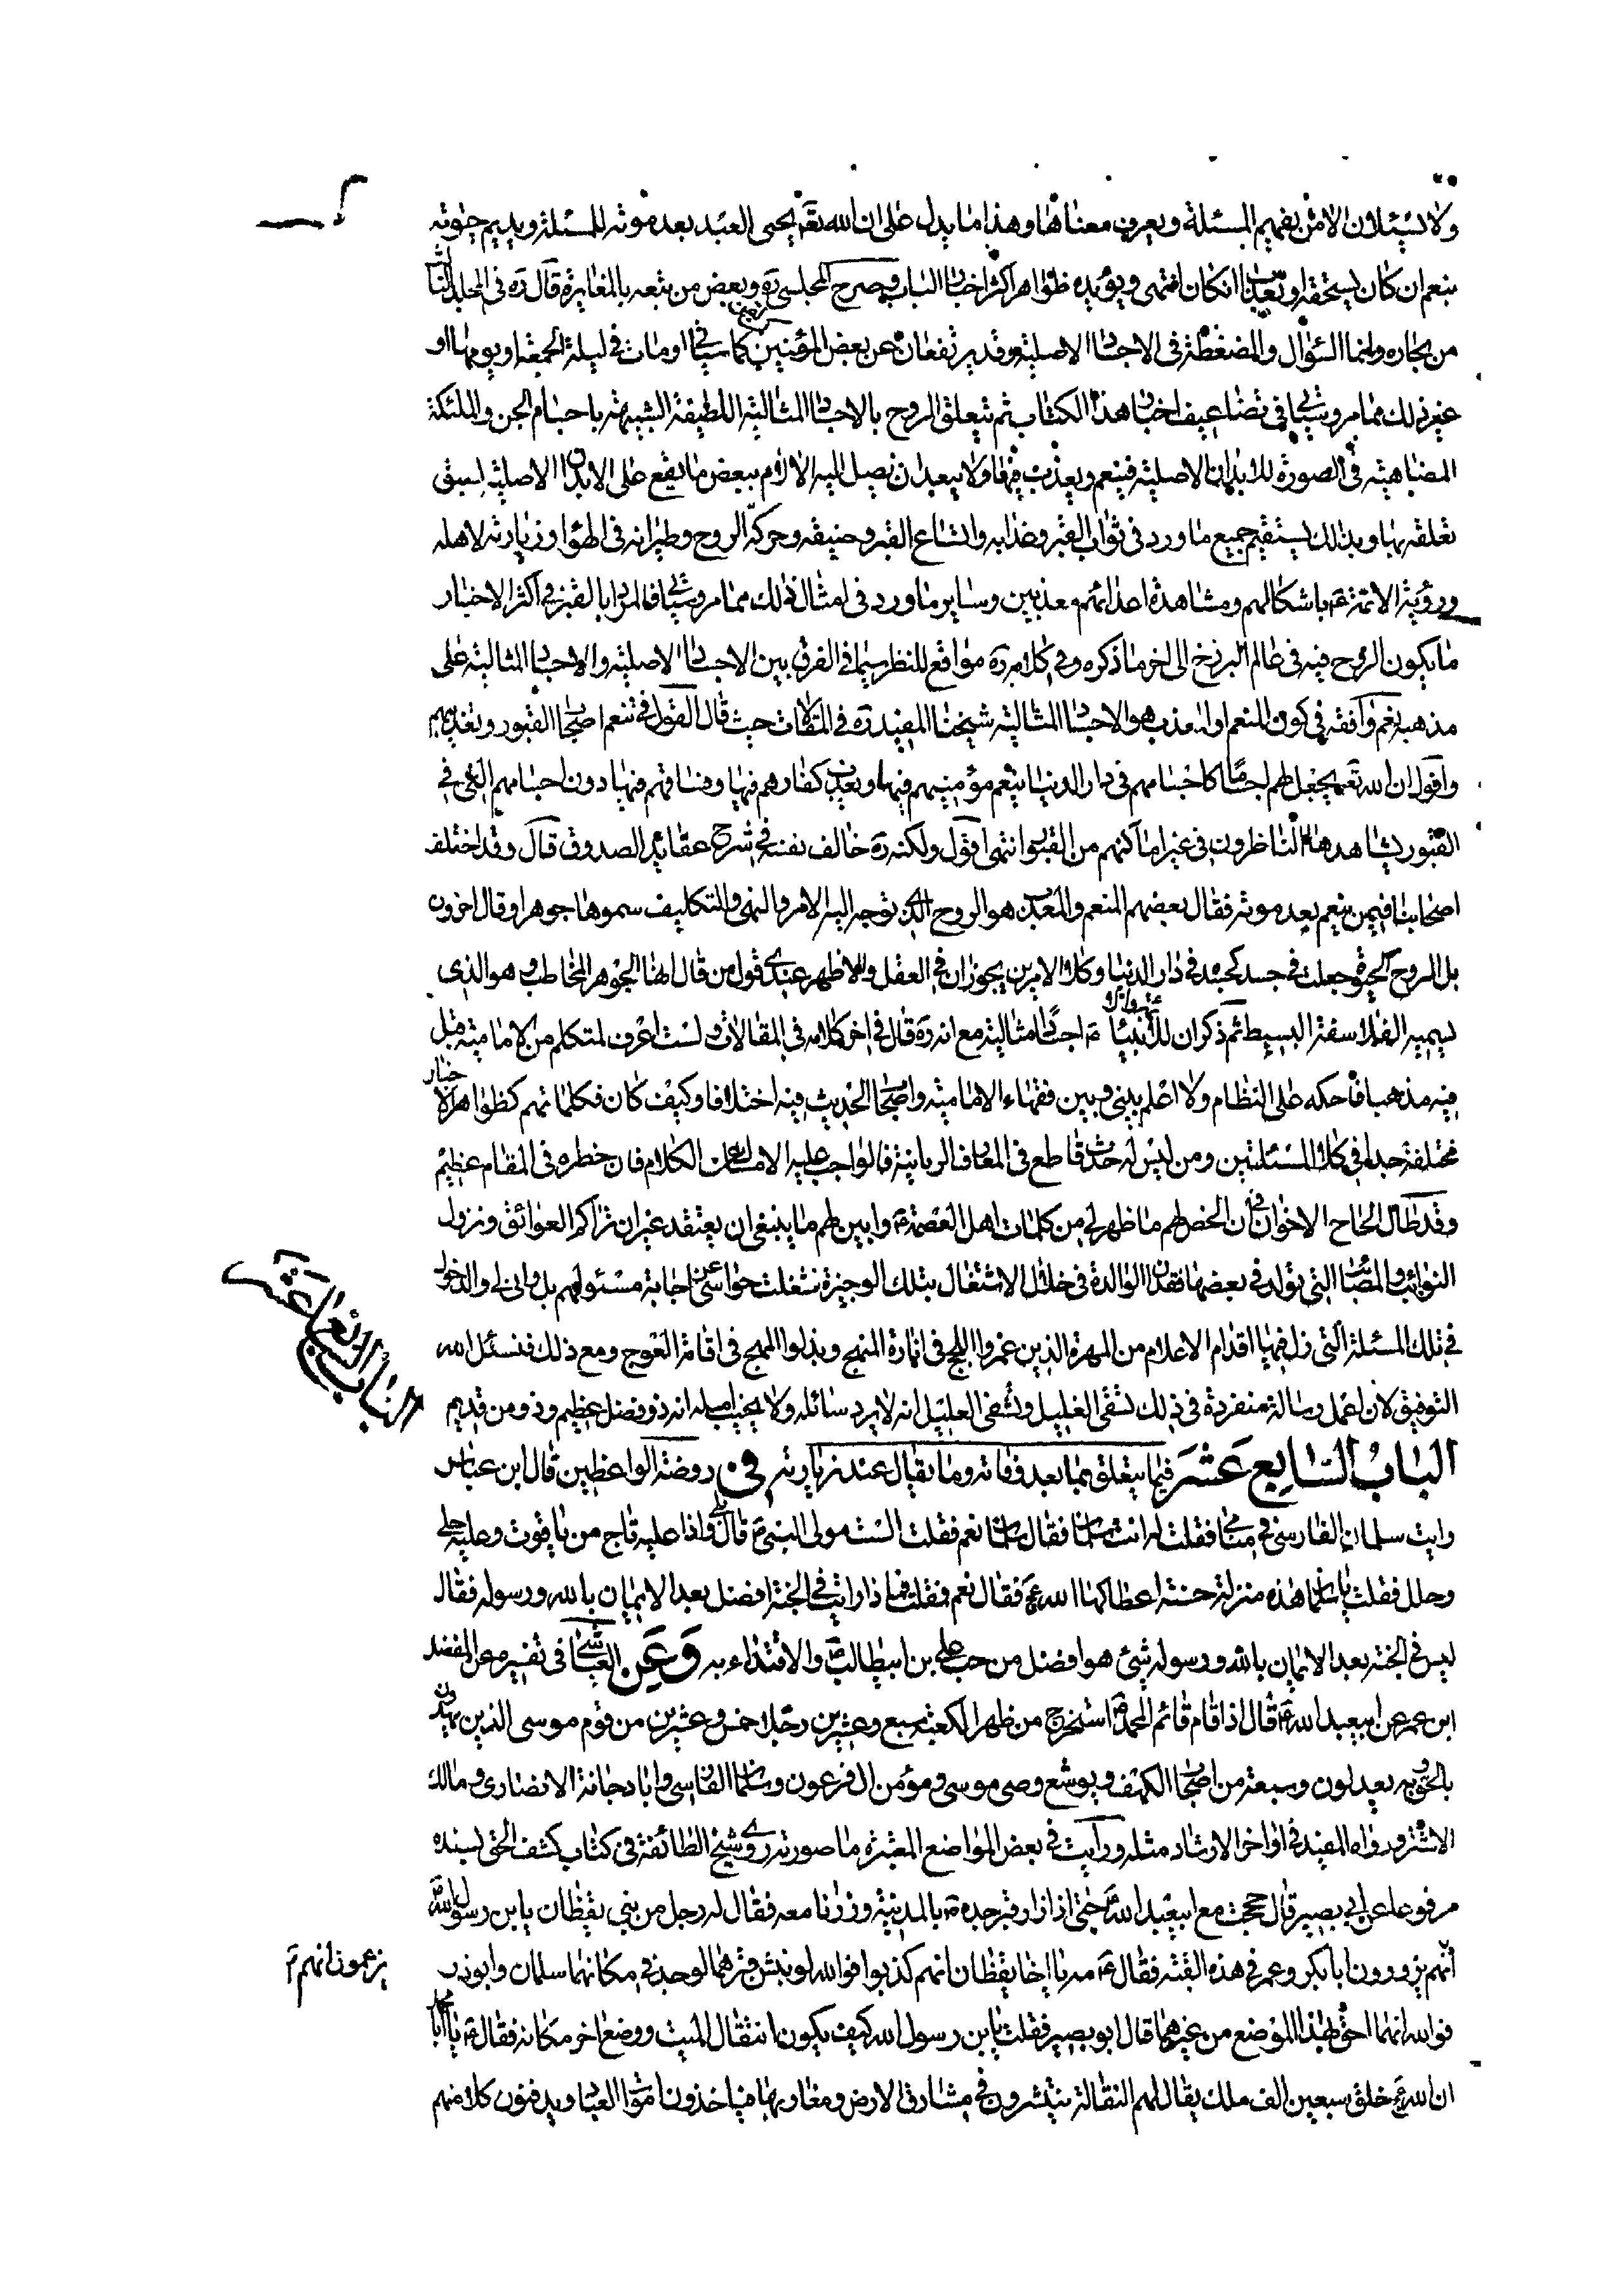 ولا يسئلان الا من يفهم المسئلة ويعرف معناها وهذا مما يدل على ان الله تعَ يحيى العبد بعد موته للمسئلة ويديم حيوته
بنعم ان كان يستحقه او بعذاب ان كان انتهى ويؤيده ظواهر اكثر اخبار الباب وصرح المجلسي ره وبعض من تبعه بالمغايرة قال ره في المجلد الثالث
من بحاره وانما السؤال والضغطة في الاجساد الاصلية وقد يرتفعان عن بعض المؤمنين كمن لقن كما سيأتي او مات في ليلة الجمعة او يومها او
غير ذلك مما مر وسيأتي في تضاعيف اخبار هذا الكتاب ثم تتعلق الروح بالاجساد المثالية اللطيفة الشبيهة باجسام الجن والملئكة
المضاهية في الصورة للابدان الاصلية فينعم ويعذب فيها ولا يبعد ان يصل اليه الالام ببعض ما يقع على الابدان الاصلية لسبق
تعلقه بها وبذلك يستقيم جميع ما ورد في ثواب القبر وعذابه واتساع القبر وضيقه وحركة الروح وطيرانه في الهوا وزيارته لاهله
ورؤية الائمة عَ باشكالهم ومشاهدة اعدائهم معذبين وساير ما ورد في امثال ذلك مما مر وسيأتي فالمراد بالقبر في اكثر الاخبار
ما يكون الروح فيه في عالم البرزخ الى اخر ما ذكره وفي كلامه ره مواقع للنظر سيما في الفرق بين الاجساد الاصلية والاجساد المثالية على
مذهبه نعم وافقه في كون المنعم او المعذب هو الاجساد المثالية شيخنا المفيد ره في المقالات حيث قال القول في تنعم اصحاب القبور وتعذيبهم
واقول ان الله تعَ يجعل لهم اجساما كاجسامهم في دار الدنيا ينعم مؤمنيهم فيها ويعذب كفارهم فيها وفساقهم فيها دون اجسامهم التي في
القبور يشاهدها الناظرون في غير اماكنهم من القبور انتهى اقول ولكنه ره خالف نفسه في شرح عقائد الصدوق قال وقد اختلف
اصحابنا فيمن ينعم بعد موته فقال بعضهم المنعم والمعذب هو الروح الذي توجه اليه الامر والنهي والتكليف سموها جوهرا وقال اخرون
بل الروح الحيوة جعلت في جسد كجسده في دار الدنيا وكلا الامرين يجوزان في العقل والاظهر عندي قول من قال انها الجوهر المخاطب وهو الذي
يسميه الفلاسفة البسيط ثم ذكر ان للانبياء والائمة عَ اجسادا مثالية مع انه ره قال في اخر كلامه في المقالات ولست اعرف لمتكلم من الامامية قبل
فيه مذهبا فاحكيه على النظام ولا اعلم بيني وبين فقهاء الامامية واصحاب الحديث فيه اختلافا وكيف كان فكلماتهم كظواهر الاخبار
مختلفة جدا في كلا المسئلتين ومن ليس له حدث قاطع في المعارف الربانية فالواجب عليه الامساك عن الكلام فان خطره في المقام عظيم
وقد طال الحاح الاخوان في ان الخص لهم ما ظهر لي من كلمات اهل العصمة عَ وابين لهم ما ينبغي ان يعتقد غير ان تراكم العوائق ونزول
النوائب والمصائب التي تولد في بعضها فقدان الوالدة في خلال الاشتغال بتلك الوجيزة شغلت حواسي عن اجابة مسئولهم بل واني لي والدخول
في تلك المسئلة التي زل فيها اقدام الاعلام من المهرة الذين غمروا اللجج في انارة المنهج وبذلوا المهج في اقامة العوج ومع ذلك فنسئل الله
التوفيق لان اعمل رسالة منفردة في ذلك تسقى الغليل وتشفى العليل انه لا يرد سائله ولا يخيب امله انه ذو فضل عظيم وذو من قديم
الباب السابع عشر فيما يتعلق بما بعد وفاته وما يقال عند زيارته في روضة الواعظين قال ابن عباس
رايت سلمان الفارسي في منامي فقلت له انت سلمان فقال سلمان نعم فقلت الست مولى النبي صَ قال بلى واذا عليه تاج من ياقوت وعليه حلي
وحلل فقلت يا سلمان هذه منزلة حسنة اعطاكها الله عَ فقال نعم فقلت فماذا رايت في الجنة افضل بعد الايمان بالله ورسوله فقال
ليس في الجنة بعد الايمان بالله ورسوله شئ هو افضل من حب علي بن ابيطالب عَ والاقتداء به وعن العياشي في تفسيره عن المفضل
ابن عمر عن ابيعبد الله عَ قال اذا قام قائم ال محمد صَ استخرج من ظهر الكعبة سبع وعشرين رجلا خمس وعشرين من قوم موسى الذين يهدون
بالحق وبه يعدلون وسبعة من اصحاب الكهف ويوشع وصي موسى ومؤمن ال فرعون وسلمان الفارسي وابا دجانة الانصاري ومالك
الاشتر ورواه المفيد في اواخر الارشاد مثله ورايت في بعض المواضع المعتبرة ما صورته روى شيخ الطائفة في كتاب كشف الحق بسنده
مرفوعا عن ابي بصير قال حججت مع ابيعبد الله عَ حتى اذا زار قبر جده صَ بالمدينة وزرنا معه فقال له رجل من بني يقظان يا بن رسول الله
انهم يزورون ابا بكر وعمر في هذه القبة فقال عَ مه يا اخا يقظان انهم كذبوا فوالله لو نبش قبرهما لوجد في مكانهما سلمان وابوذر
يزعمون انهم
فوالله انهما احق بهذا الموضع من غيرهما قال ابو بصير فقلت يا بن رسول الله كيف يكون انتقال الميت ووضع اخر مكانه فقال عَ يا ابا محمد
ان الله عَ خلق سبعين الف ملك يقال لهم النقالة ينتشرون في مشارق الارض ومغاربها فياخذون اموات العباد ويدفنون كلا منهم
الباب السابع عشر